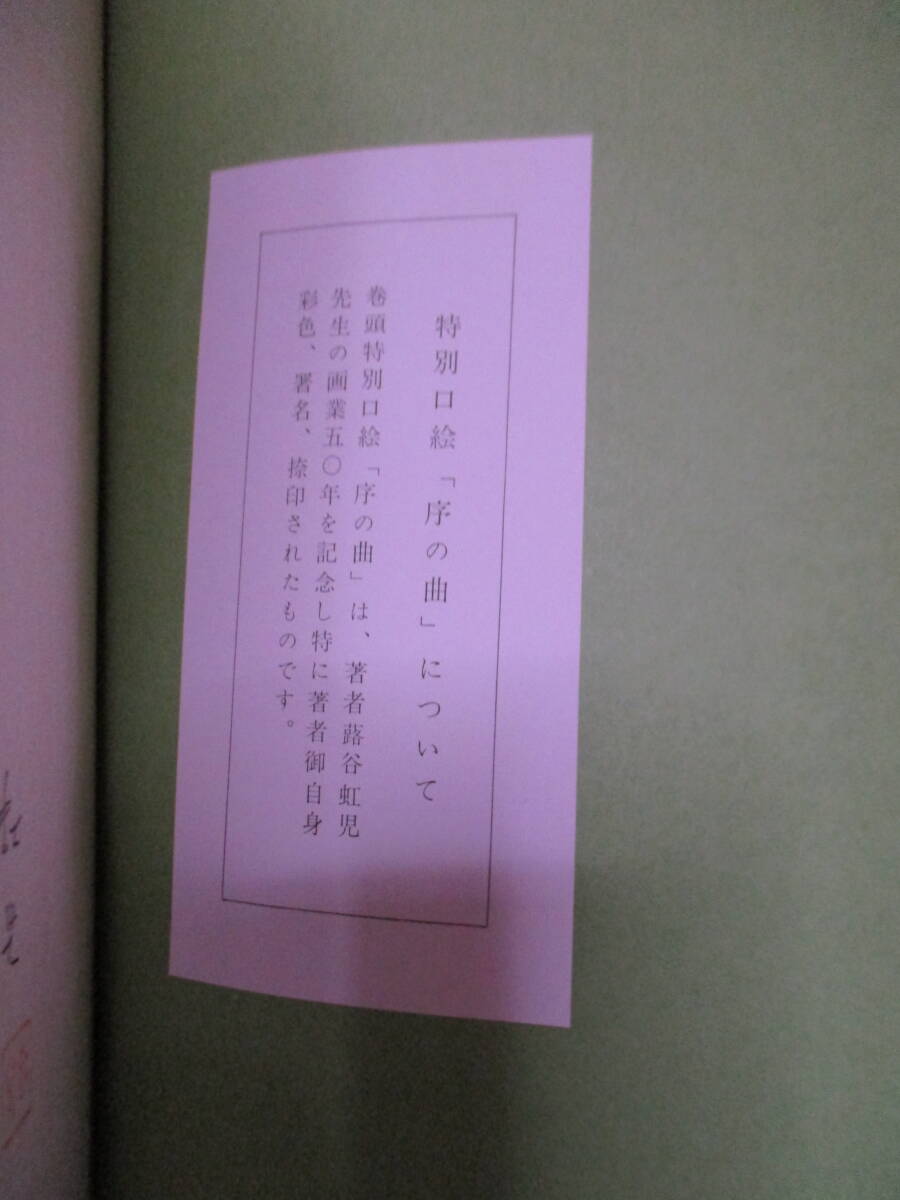 特別口絵「序の曲」について
巻頭特別口絵「序の曲」は、著者蕗谷虹児
先生の画業五〇年を記念し特に著者御自身
彩色、署名、捺印されたものです。